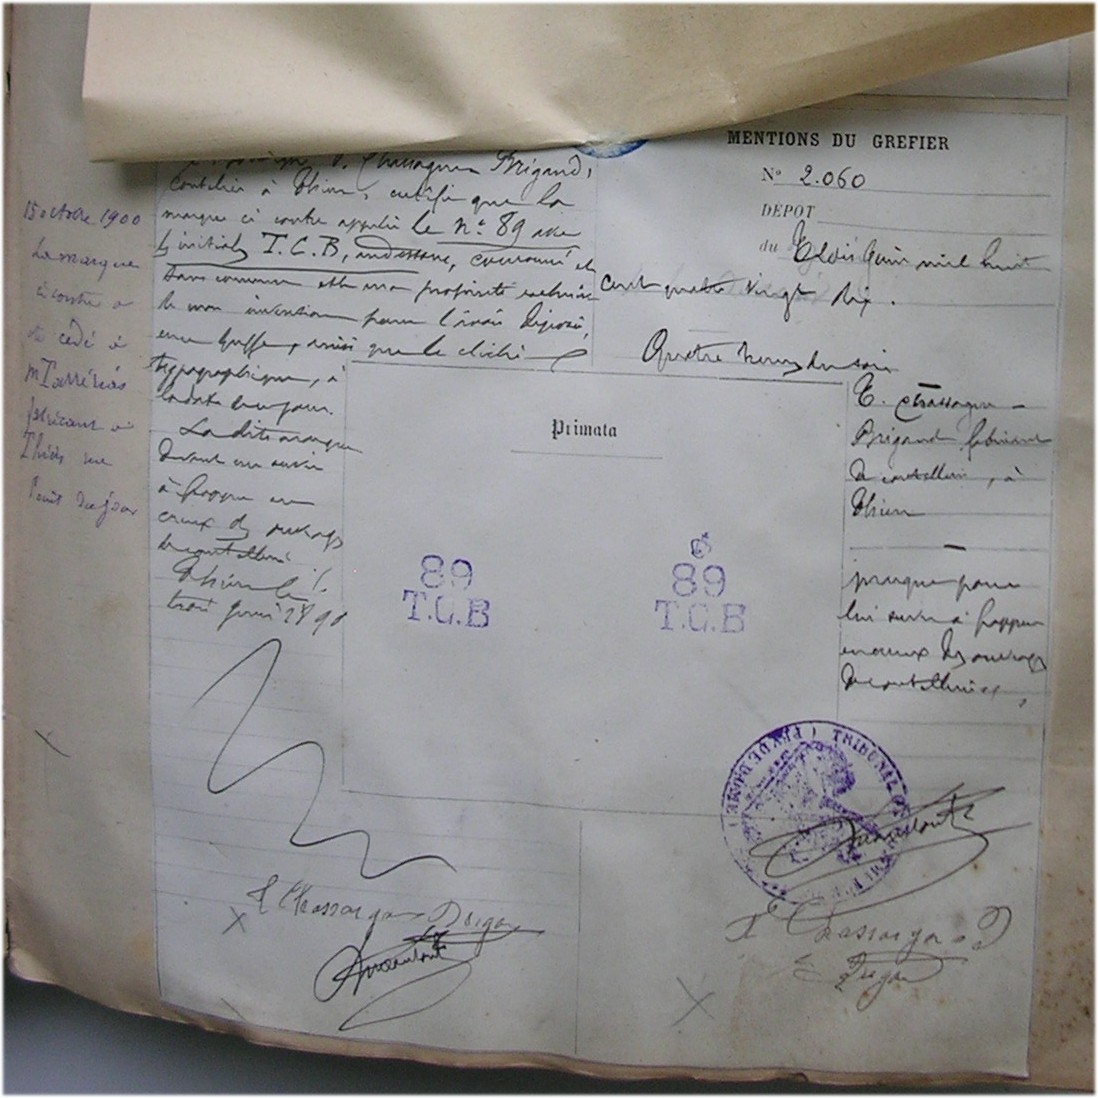 T. Chassaigne Brigand,
coutelier à Thiers, certifie que la
marque ci contre appelée le n° 89 avec
les initiales T.C.B, au dessous, couronné et
sans couronne est ma propriété exclusive
de mon invention pour l'avoir déposée,
au greffe, ainsi que le cliché
typographique, à
la date de ce jour.
La dite marque
devant me servir
à frapper en
creux des ouvrages
de coutellerie
Thiers le
trois juin 1890
15 octobre 1900
La marque
ci contre a
été cédé à
Mr
fabricant à
Thiers rue
MENTIONS DU GREFIER
N° 2.060
DÉPOT
du Trois Juin mil huit
cent quatre vingt dix.
Quatre heures du soir
T. Chassaigne-
Brigand fabricant
de coutellerie, à
Thiers
marque pour
lui servir à frapper
en creux des ouvrages
de coutelleries,
Primata
89
T.C.B
89
T.C.B
TRIBUNAL DE
(PUY DE DOME)